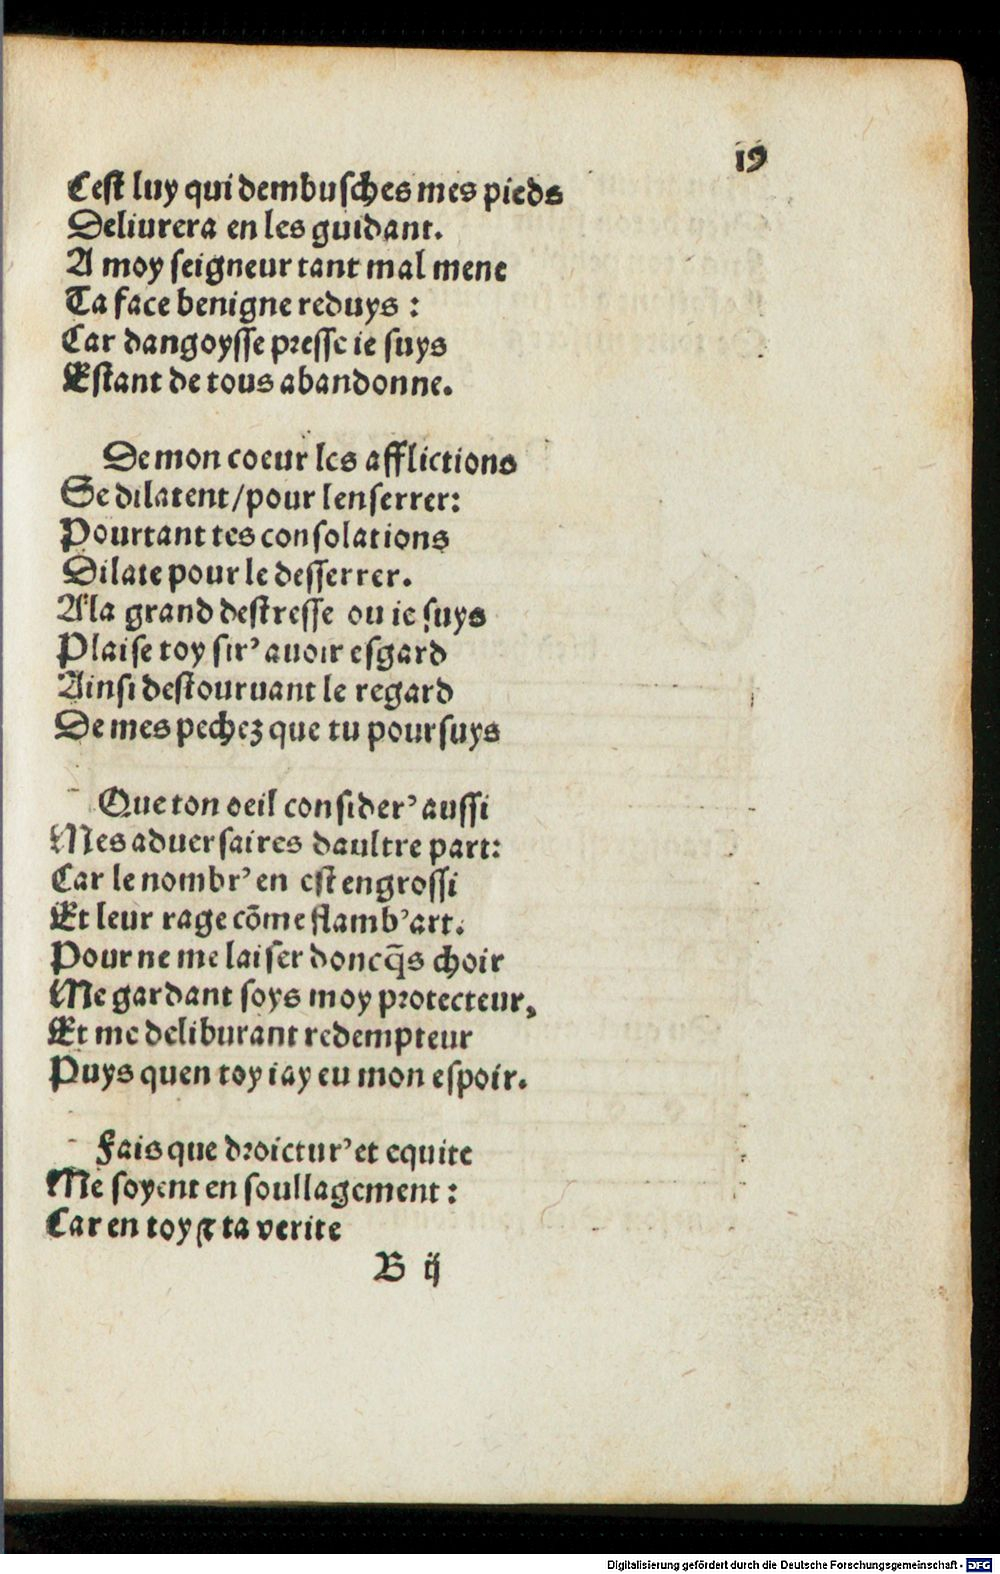 19
Cest luy qui dembusches mes pieds
Deliurera en les guidant.
A moy seigneur tant mal mene
Ta face benigne reduys :
Car dangoysse presse ie suys
Estant de tous abandonne.
De mon coeur les afflictions
Se dilatent/pour lenserrer:
Pourtant tes consolations
Dilate pour le desserrer.
A la grand destresse ou ie suys
Plaise toy sir' auoir esgard
Ainsi destouruant le regard
De mes pechez que tu poursuys
Que ton oeil consider' aussi
Mes aduersaires daultre part:
Car le nombr' en est engrossi
Et leur rage cõme flamb'art.
Pour ne me laiser doncq̃s choir
Me gardant soys moy protecteur,
Et me deliburant redempteur
Puys quen toy iay eu mon espoir.
Fais que droictur' et equite
Me soyent en soullagement :
Car en toy ⁊ ta verite
B ij
Digitalisierung gefördert durch die Deutsche Forschungsgemeinschaft - DFG